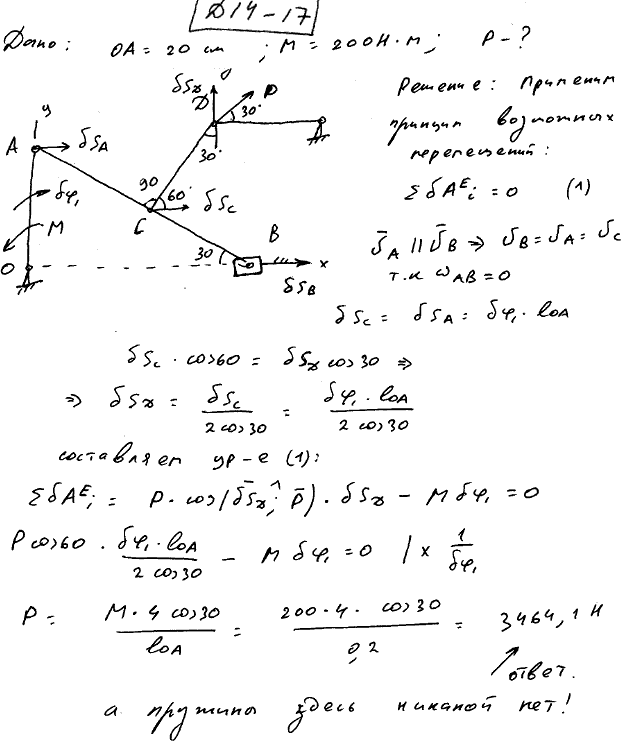 Д14-17
Дано: OA = 20 см ; M = 200 Н·м ; P - ?
Решение: Применим
принцип возможных
перемещений:
ΣδA^E_i = 0 (1)
ῡ_A || ῡ_B ⇒ υ_B = υ_A = υ_C
т.к ω_AB = 0
y
A
δS_A
δφ₁
M
O
90
60°
C
δS_C
30
B
x
δS_B
δS_D
D
P
30°
30°
δS_C = δS_A = δφ₁ · l_OA
δS_C · cos60 = δS_D cos30 ⇒
⇒ δS_D = δS_C / (2 cos30) = δφ₁ · l_OA / (2 cos30)
составляем ур-е (1):
ΣδA^E_i = P · cos(δS̄_D ^; P̄) · δS_D - M δφ₁ = 0
P cos60 · δφ₁ · l_OA / (2 cos30) - M δφ₁ = 0 / × 1/δφ₁
P = M · 4 cos30 / l_OA = 200 · 4 · cos30 / 0,2 = 3464,1 Н
ответ.
а пружины здесь никакой нет!